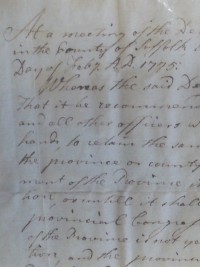 At a meeting of the De
in the county of Suffolk
Day of Feby. A.D. 1775.
Whereas the said De
That it be recommend
and all other officers w
hands to retain the sam
the province or county
ment of the Province
tion, or until it shall
provincial Congres
of the Province is not ye
tion, and the provinc